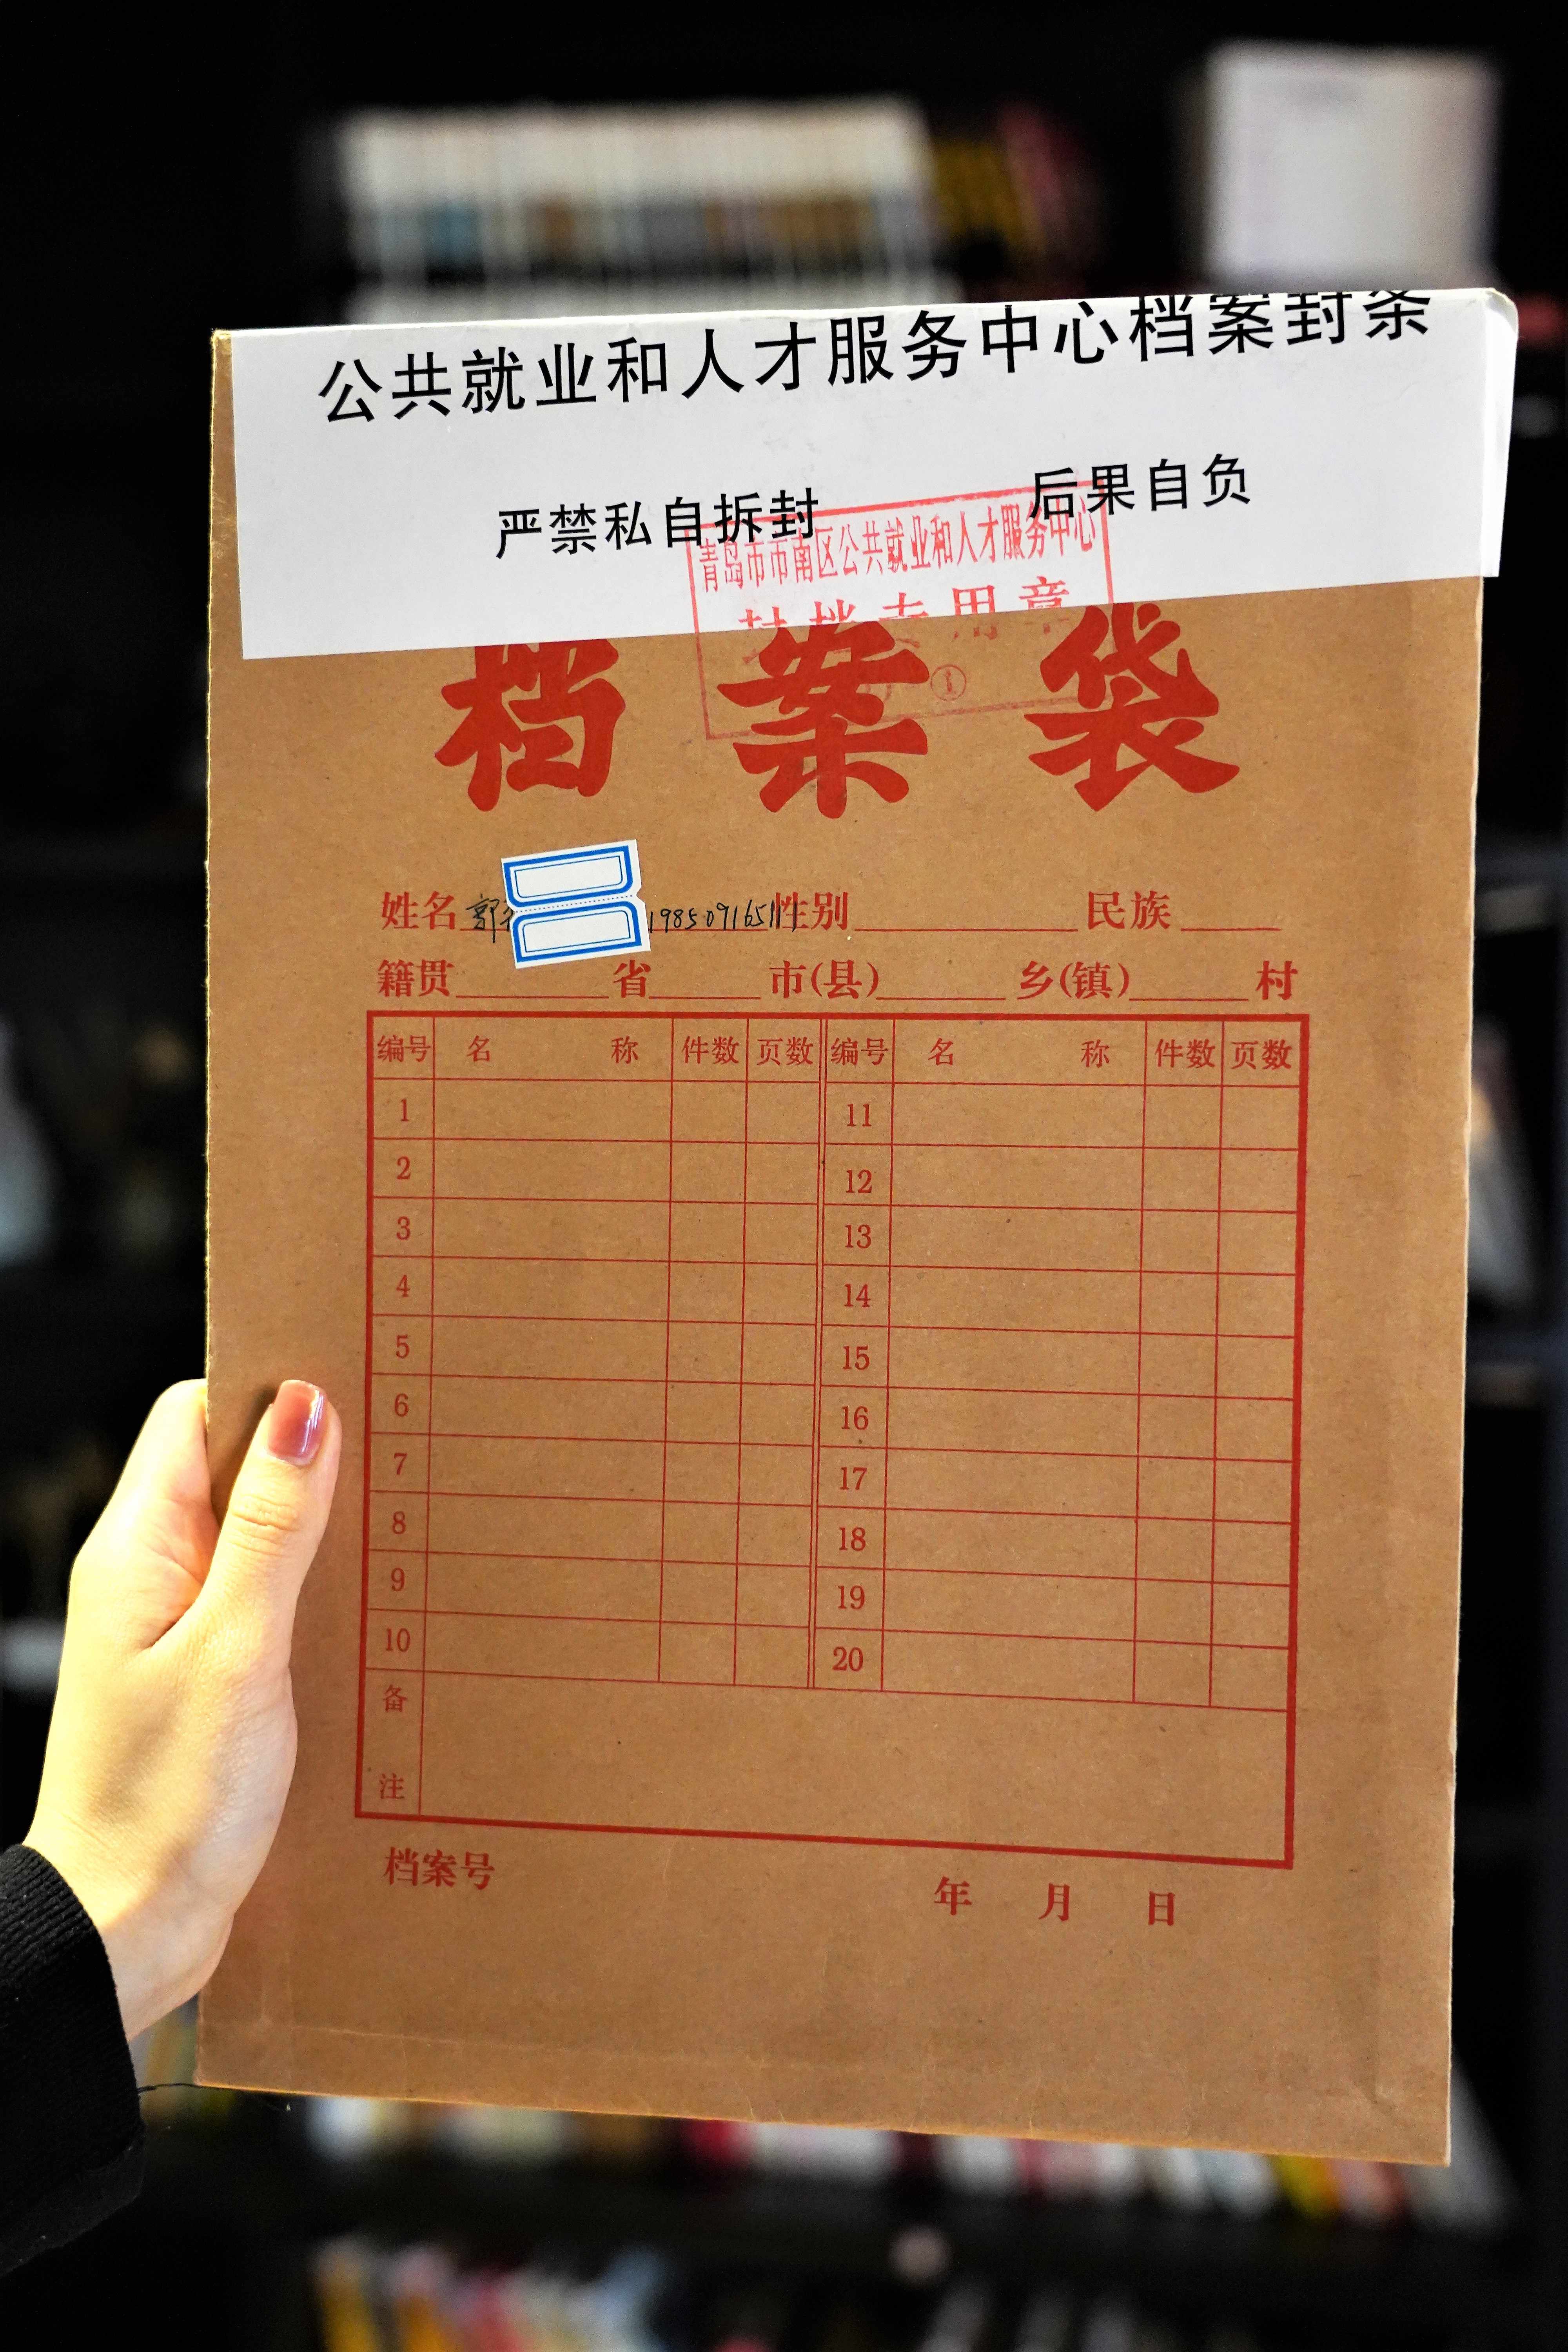 公共就业和人才服务中心档案封条
严禁私自拆封 后果自负
青岛市市南区公共就业和人才服务中心
封档专用章
①
档案袋
姓名 郭 198509165111 性别 民族
籍贯 省 市(县) 乡(镇) 村
编号 名称 件数 页数 编号 名称 件数 页数
1 11
2 12
3 13
4 14
5 15
6 16
7 17
8 18
9 19
10 20
备注
档案号
年 月 日